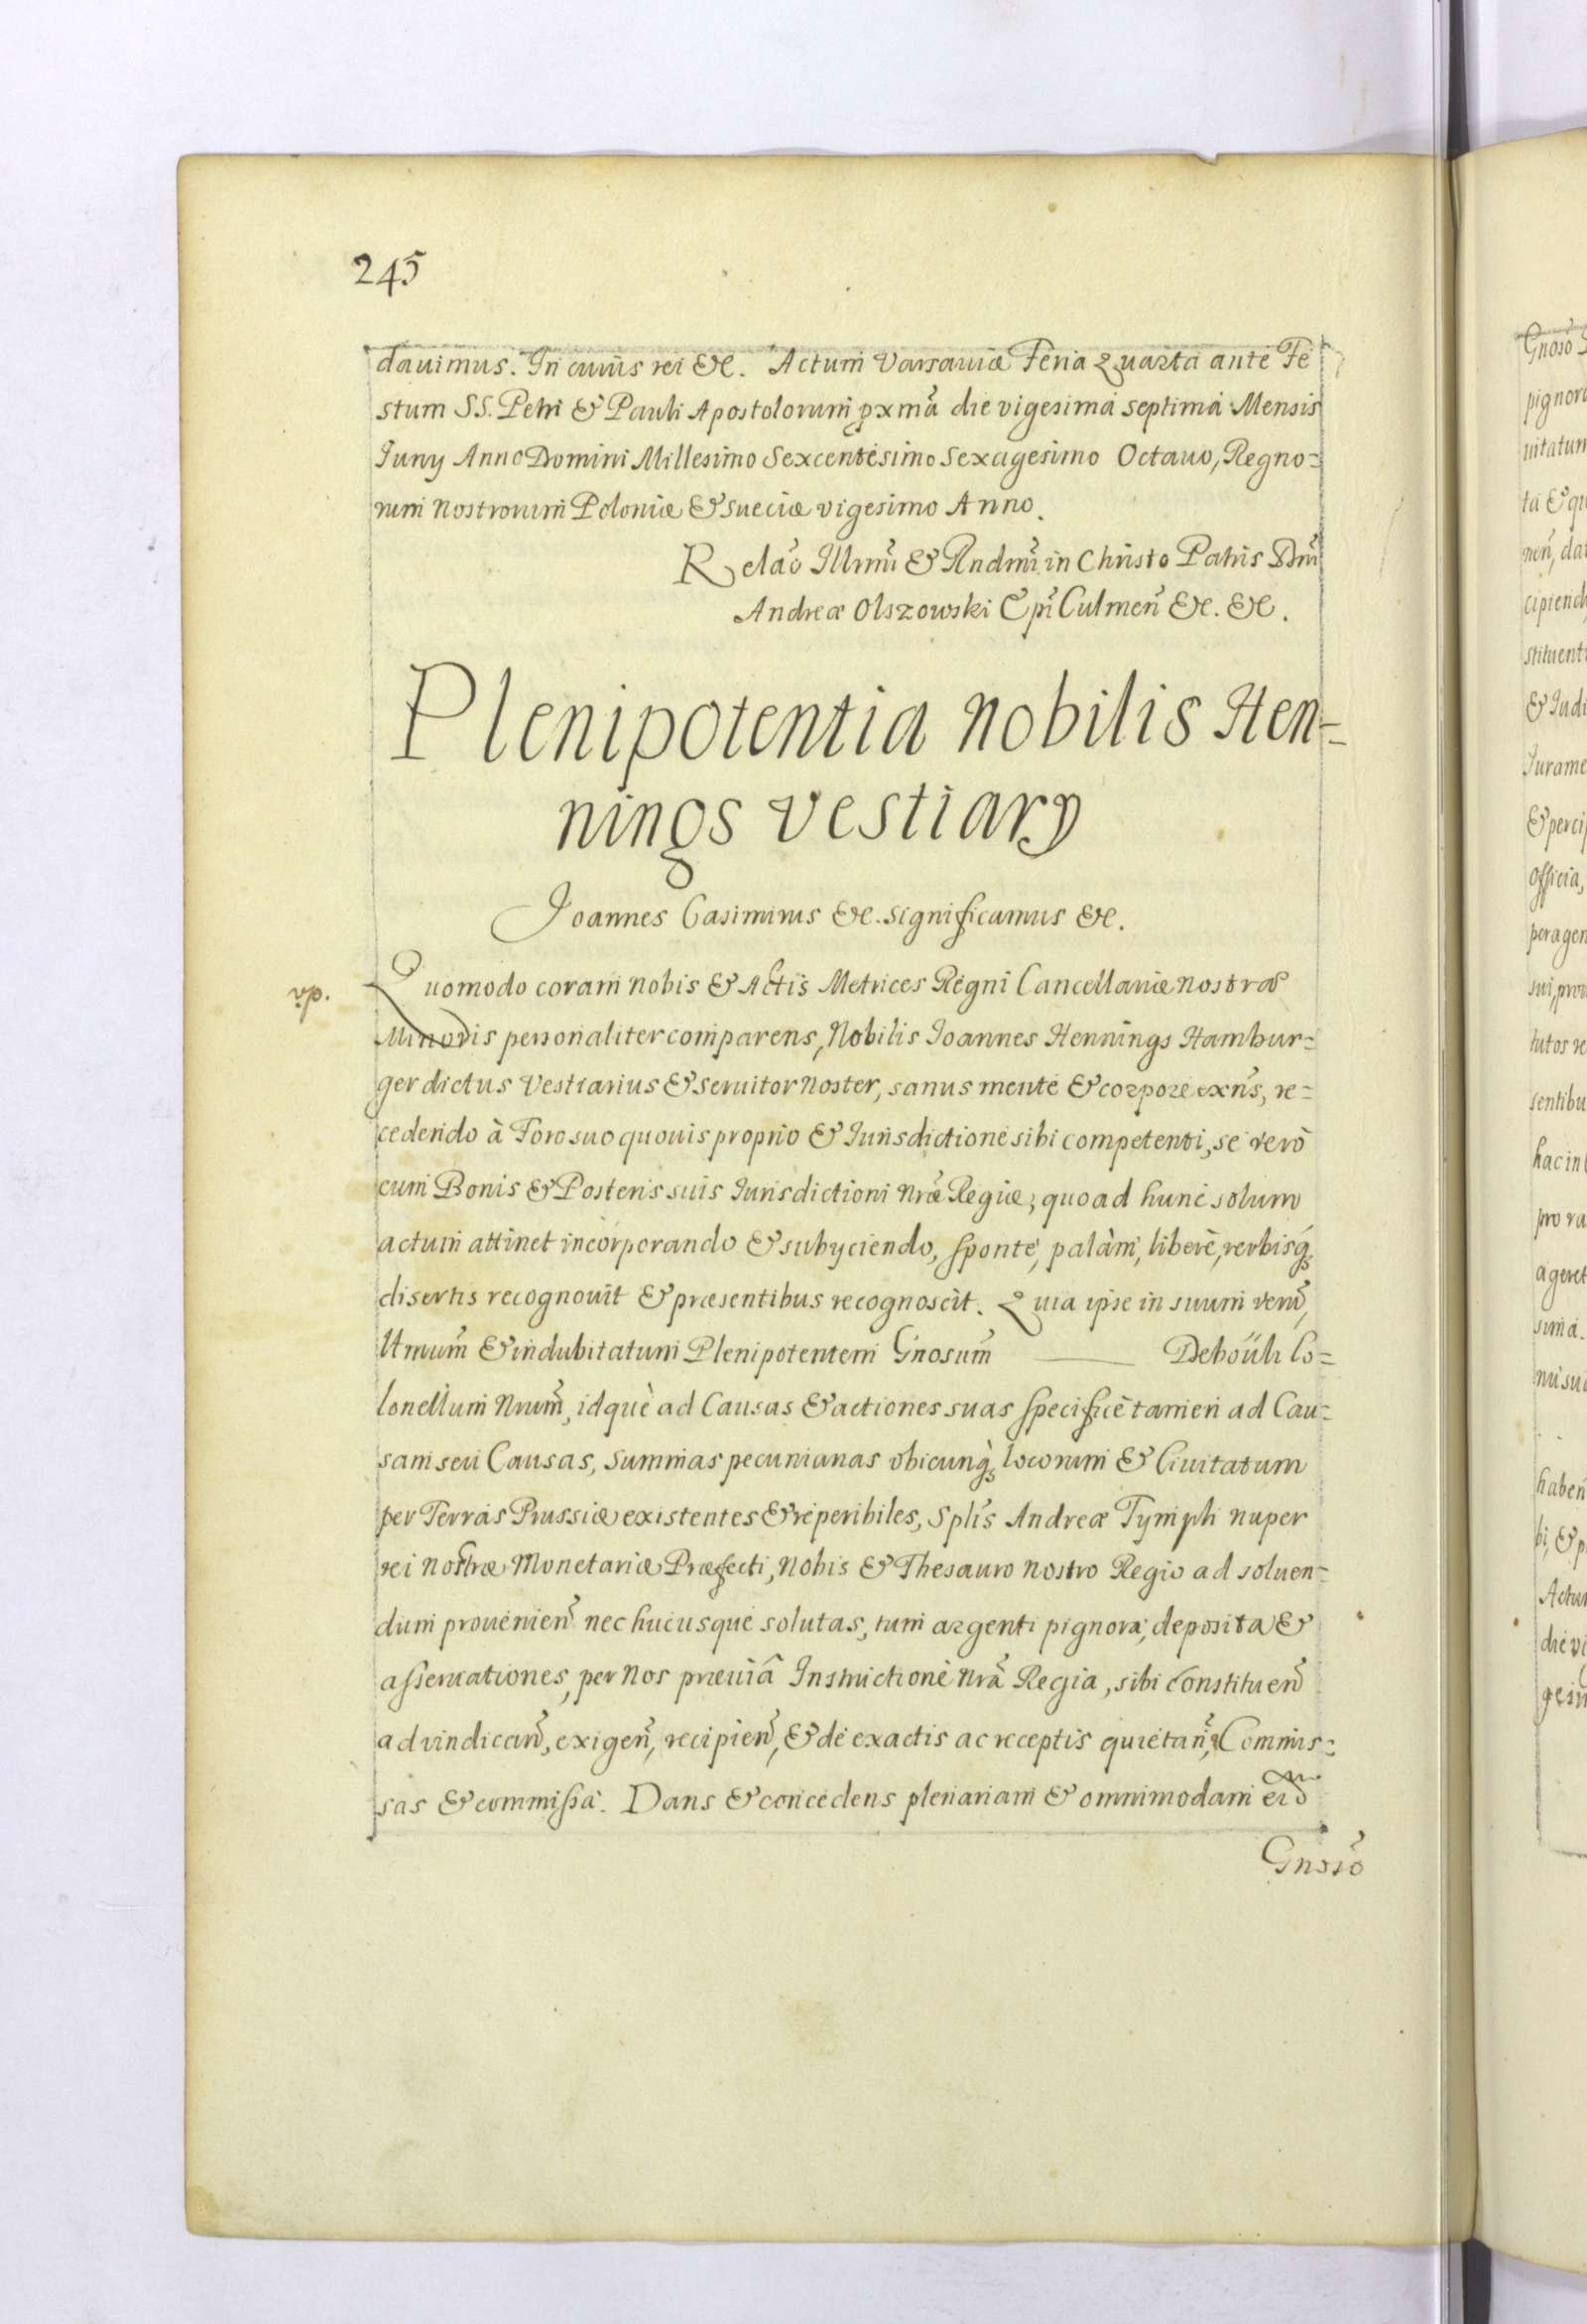 245
dauimus. In cuius rei &c. Actum Varsauiæ Feria Quarta ante Fe
stum SS. Petri & Pauli Apostolorum pxmã die vigesima septima Mensis
Iuny Anno Domini Millesimo Sexcentesimo Sexagesimo Octauo, Regno=
rum Nostrorum Poloniæ & Sueciæ vigesimo Anno.
Relaõ Illrmi & Rndmi in Christo Patris Dni
Andreæ Olszowski Epi Culmen &c. &c.
Plenipotentia Nobilis Hen=
nings Vestiary
Joannes Casimirus &c. significamus &c.
vp.
Quomodo coram nobis & Actis Metrices Regni Cancellariæ nostræ
Minoris personaliter comparens, Nobilis Ioannes Hennings Hambur=
ger dictus Vestiarius & seruitor noster, sanus mente & corpore exns, re=
cedendo à Foro suo quouis proprio & Iurisdictione sibi competenti, se verò
cum Bonis & Posteris suis Iurisdictioni Nræ Regiæ, quo ad hunc solum
actum attinet incorporando & subyciendo, sponte, palàm, liberè, verbisq
disertis recognouit & præsentibus recognoscit. Quia ipse in suum verũ,
Utmum & indubitatum Plenipotentem Gnosum ——— Deboüli Co=
lonellum Nrum, idquè ad Causas & actiones suas specificè tamen ad Cau=
sam seu Causas, summas pecuniarias vbicunq locorum & Ciuitatum
per Terras Prussiæ existentes & reperibiles, Splis Andreæ Tymph nuper
rei nostræ Monetariæ Præfecti, Nobis & Thesauro Nostro Regio ad soluen=
dum prouenien nec hucusque solutas, tum argenti pignora, deposita &
asseruationes, per Nos præuiâ Instructione Nrã Regia, sibi constituen
ad vindican, exigen, recipien, & de exactis ac receptis quietan, Commis=
sas & commissa. Dans & concedens plenariam & omnimodam eid
Gnoso